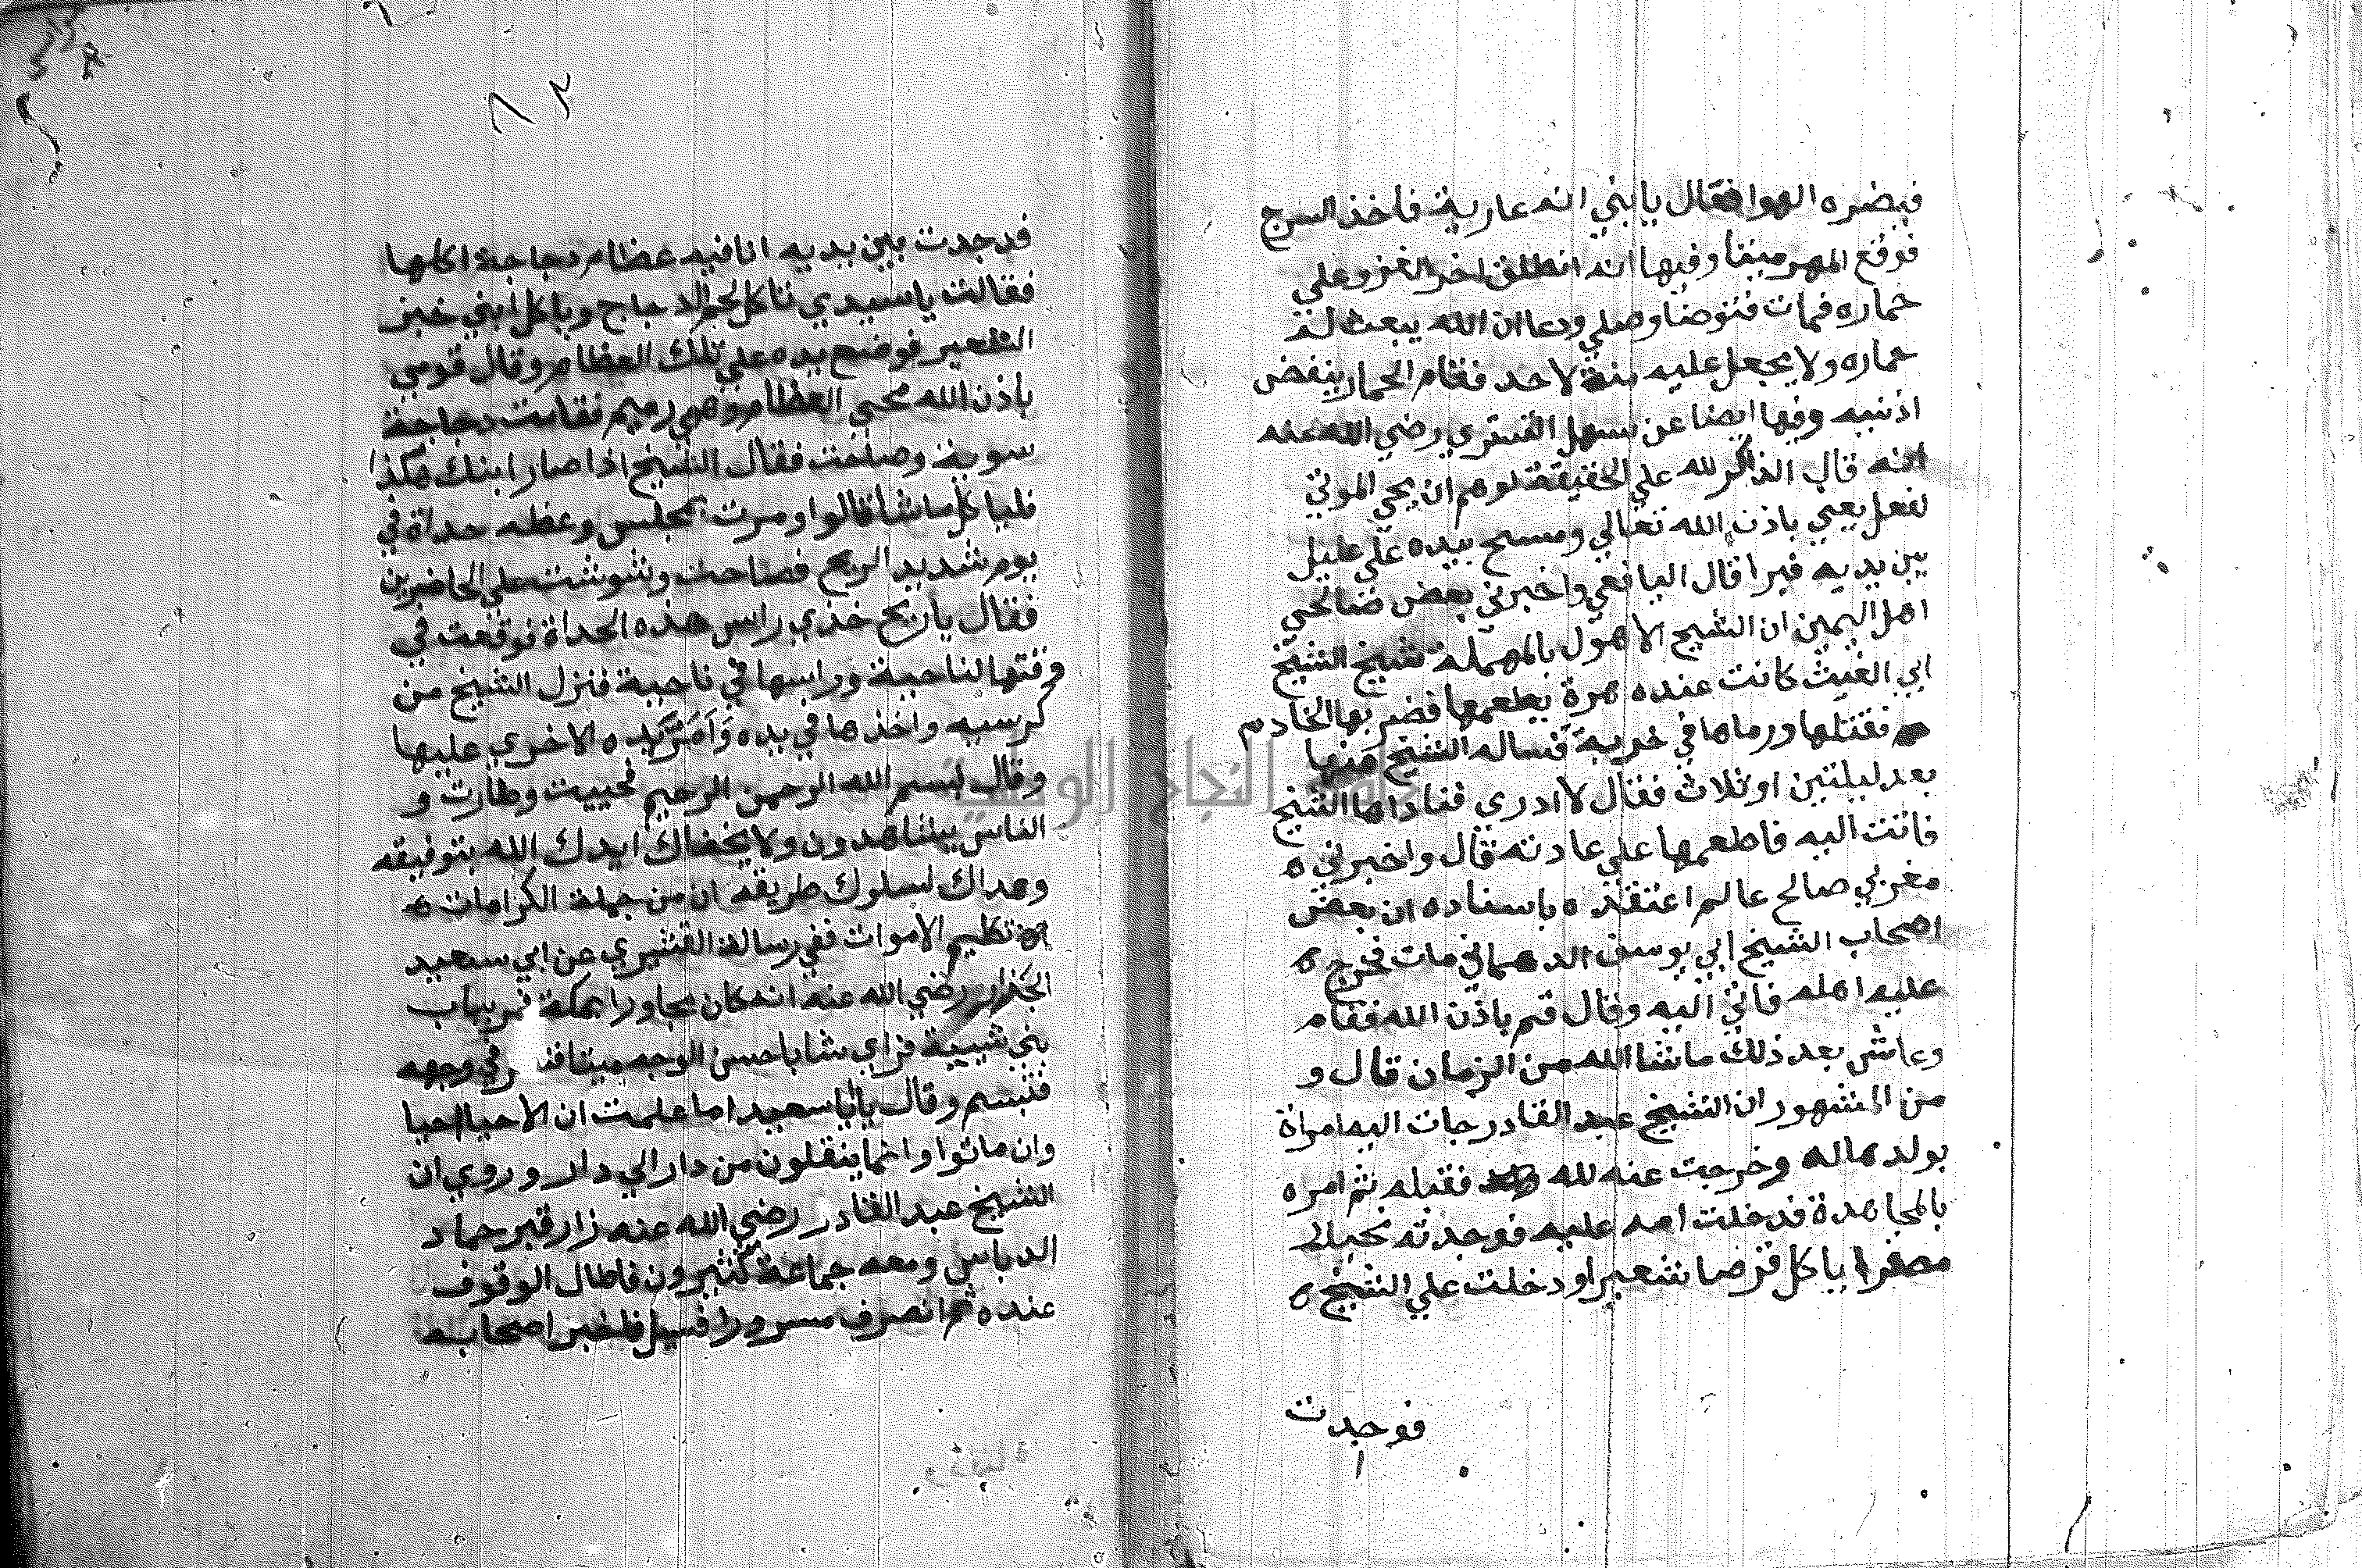 فيضره الهوا فقال يا بني انه عارية فاخذ السرج
فوقع المهر ميتا وفيها انه انطلق اخر الغزو علي
حماره فمات فتوضا وصلي ودعا ان الله يبعث له
حماره ولا يجعل عليه منة لاحد فقام الحمار ينفض
اذنيه وفيها ايضا عن سهل التستري رضي الله عنه
انه قال الذاكر لله علي الحقيقة لو هم ان يحي الموتي
لفعل يعني باذن الله تعالي ومسح بيده علي عليل
بين يديه فبرا قال اليافعي واخبرني بعض صالحي
اهل اليمين ان الشيخ الاهول بالمهملة شيخ الشيخ
ابي الغيث كانت عنده هرة يطعمها فضربها الخادم
فقتلها ورماها في خربة فساله الشيخ عنها
بعد ليلتين او ثلاث فقال لا ادري فناداها الشيخ
فاتت اليه فاطعمها علي عادته قال واخبرني ه
مغربي صالح عالم اعتقده باسناده ان بعض
اصحاب الشيخ ابي يوسف الدهماني مات فحرج ه
عليه اهله فاتي اليه وقال قم باذن الله فقام
وعاش بعد ذلك ما شا الله من الزمان قال و
من المشهور ان الشيخ عبد القادر جات اليه امراة
بولد هاله وخرجت عنه لله فقبله ثم امره
بالمجاهدة فدخلت امه عليه فوجدته نحيلا
مصفرا ياكل قرصا شعيرا ودخلت علي الشيخ ه
فوجدت
٨٣
فدجدت بين يديه انا فيه عظام دجاجة اكلها
فقالت يا سيدي تاكل لحم الدجاج وياكل ابني خبز
الشعير فوضع يده علي تلك العظام وقال قومي
باذن الله محي العظام وهي رميم فقامت دجاجة
سوية وصاحت فقال الشيخ اذا صار ابنك هكذا
فلياكل ما شا قالوا ومرت بمجلس وعظه حداة في
يوم شديد الريح فصاحت وشوشت علي الحاضرين
فقال يا ريح خذي راس هذه الحداة فوقعت في
وقتها لناحية وراسها في ناحية فنزل الشيخ من
كرسيه واخذها في يده وَاَمَرَّ يده الاخري عليها
وقال بسم الله الرحمن الرحيم فحييت وطارت و
الناس يشاهدون ولا يخفاك ايدك الله بتوفيقه
وهداك لسلوك طريقه ان من جملة الكرامات
تكليم الاموات ففي رسالة القشيري عن ابي سعيد
الخزاز رضي الله عنه انه كان مجاورا بمكة فمر بباب
بني شيبة فراي شابا حسن الوجه ميتا في وجهه
فتبسم وقال يا ابا سعيد اما علمت ان الاحبا احيا
وان ماتوا وانما ينقلون من دار الي دار وروي ان
الشيخ عبد القادر رضي الله عنه زار قبر حماد
الدباس ومعه جماعة كثيرون فاطال الوقوف
عنده ثم انصرف مسرورا فسيل فاخبر اصحابه